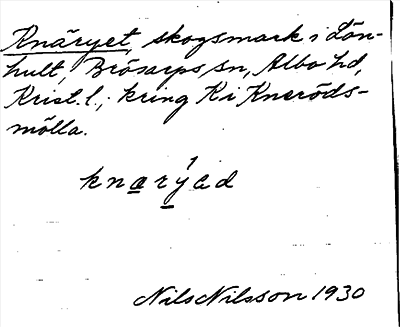 Knäryet, skogsmark i Lön-
hult, Brösarps sn, Albo hd,
Krist. l.; kring K i Kneröds-
mölla.
knarýad
Nils Nilsson 1930